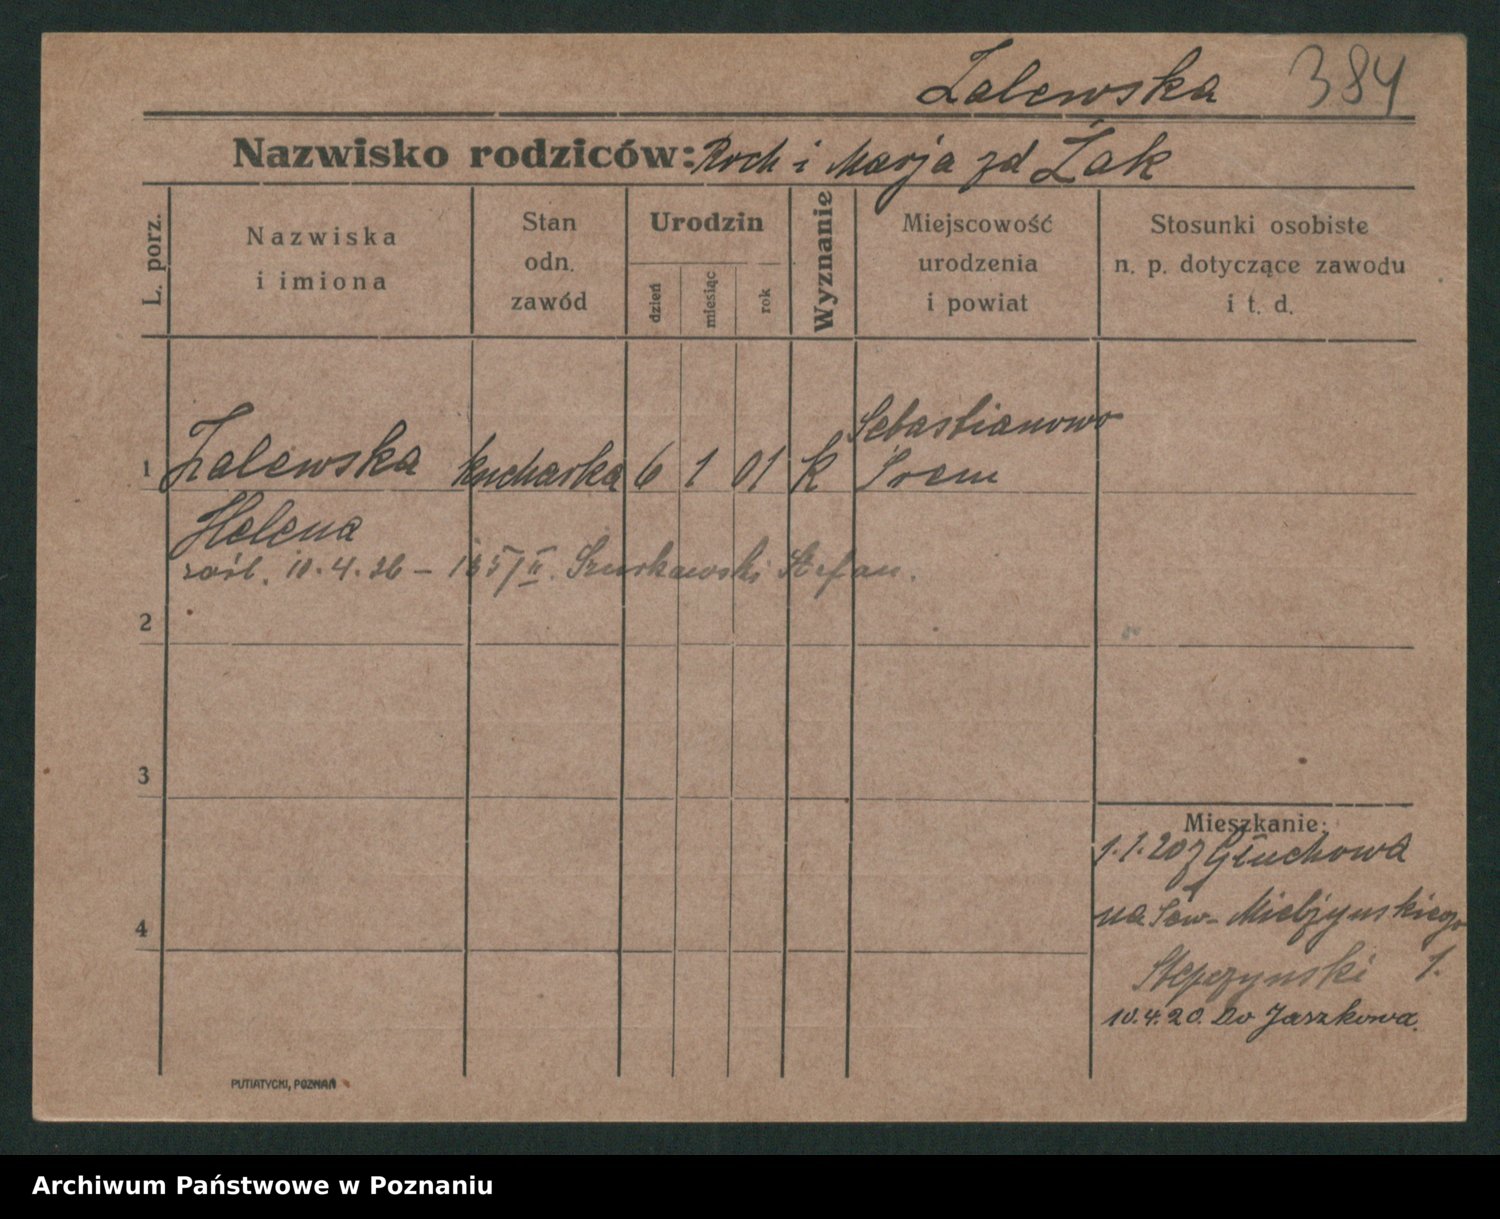 Zalewska 384
Nazwisko rodziców: Roch i Marja zd Żak
L. porz.
Nazwiska
i imiona
Stan
odn.
zawód
Urodzin
dzień
miesiąc
rok
Wyznanie
Miejscowość
urodzenia
i powiat
Stosunki osobiste
n. p. dotyczące zawodu
i t. d.
Sebastianowo
1 Zalewska kucharka 6 1 01 k Śrem
Helena
zaśl. 10.4.26 – II. Szurkowski Stefan.
2
3
Mieszkanie:
1.1.20 z Głuchowa
4
na Sew- Mielżynskiego
1.
10.4.20. Do Jaszkowa.
PUTIATYCKI, POZNAŃ
Archiwum Państwowe w Poznaniu